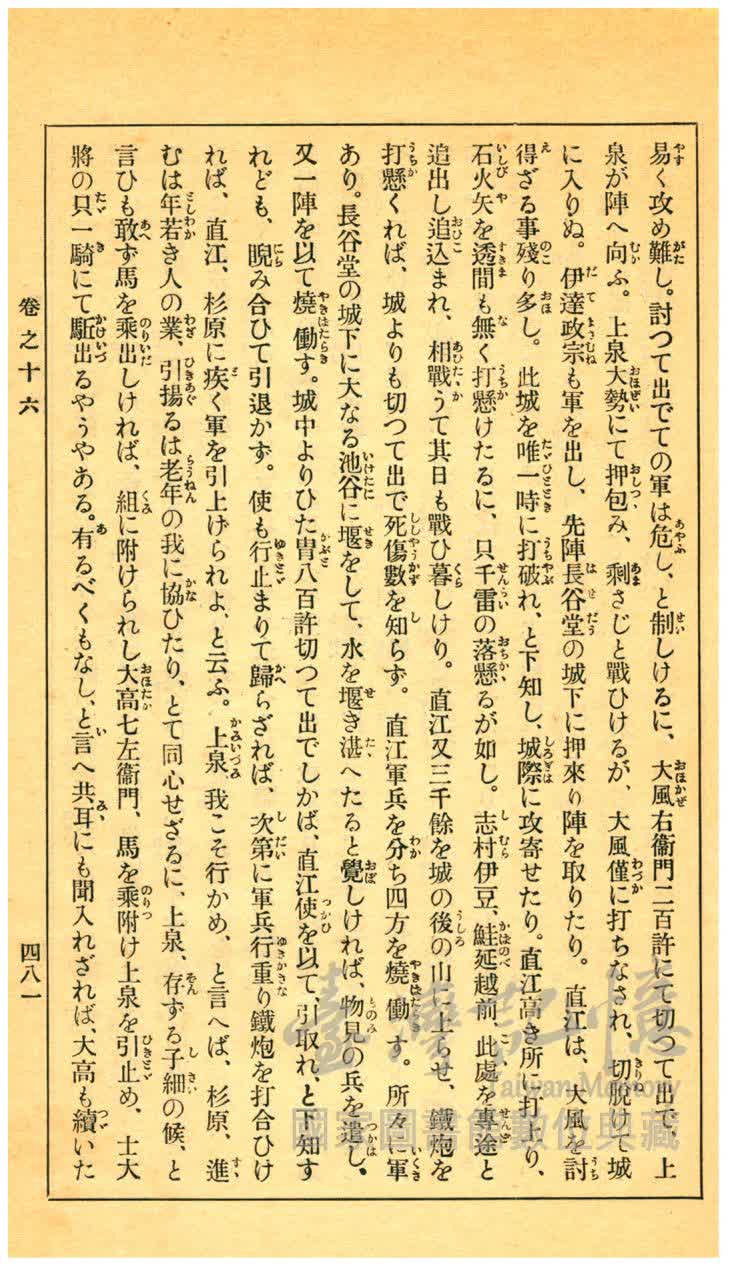 易く攻め難し。討つて出でての軍は危し、と制しけるに、大風右衞門二百許にて切つて出で、上
泉が陣へ向ふ。上泉大勢にて押包み、剩さじと戰ひけるが、大風僅に打ちなされ、切脱けて城
に入りぬ。伊達政宗も軍を出し、先陣長谷堂の城下に押來り陣を取りたり。直江は、大風を討
得ざる事殘り多し。此城を唯一時に打破れ、と下知し、城際に攻寄せたり。直江高き所に打上り、
石火矢を透間も無く打懸けたるに、只千雷の落懸るが如し。志村伊豆、鮭延越前、此處を專途と
追出し追込まれ、相戰うて其日も戰ひ暮しけり。直江又三千餘を城の後の山に上らせ、鐵炮を
打懸くれば、城よりも切つて出で死傷數を知らず。直江軍兵を分ち四方を燒働す。所々に軍
あり。長谷堂の城下に大なる池谷に堰をして、水を堰き湛へたると覺しければ、物見の兵を遣し、
又一陣を以て燒働す。城中よりひた冑八百許切つて出でしかば、直江使を以て、引取れ、と下知す
れども、睨み合ひて引退かず。使も行止まりて歸らざれば、次第に軍兵行重り鐵炮を打合ひけ
れば、直江、杉原に疾く軍を引上げられよ、と云ふ。上泉、我こそ行かめ、と言へば、杉原、進
むは年若き人の業、引揚るは老年の我に協ひたり、とて同心せざるに、上泉、存ずる子細の候、と
言ひも敢ず馬を乘出しければ、組に附けられし大高七左衞門、馬を乘附け上泉を引止め、士大
將の只一騎にて駈出るやうやある。有るべくもなし、と言へ共耳にも聞入れざれば、大高も續いた
卷之十六
四八一
臺灣記憶
Taiwan Memory
國家圖書館數位典藏